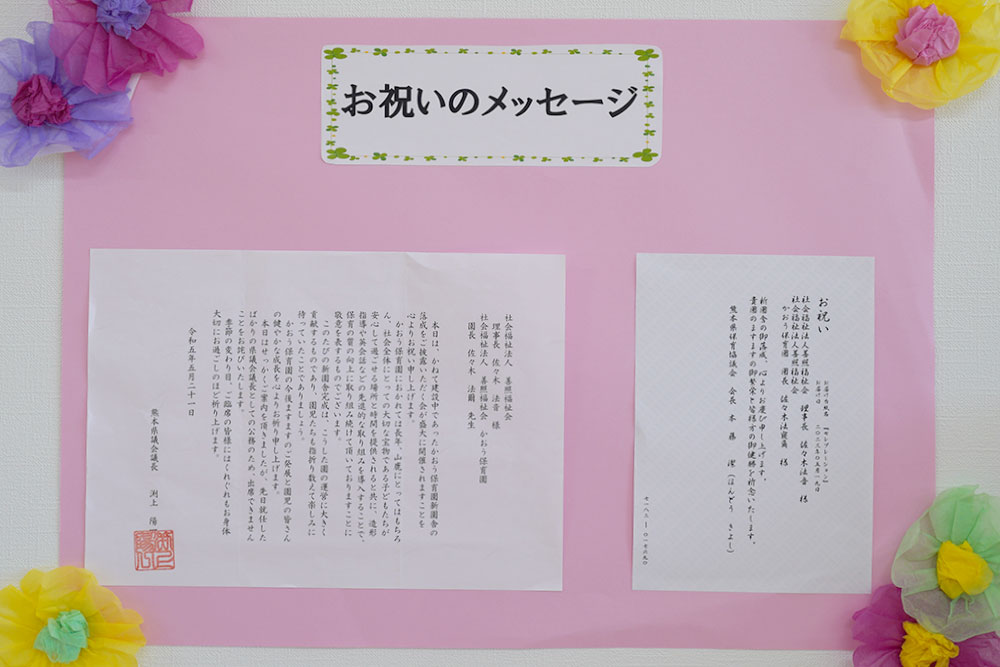 お祝いのメッセージ
社会福祉法人　善照福祉会
理事長　佐々木　法音　様
社会福祉法人　善照福祉会　かおう保育園
園長　佐々木　法爾　先生
本日は、かねて建設中であったかおう保育園新園舎の
落成をご披露いただく会が盛大に開催されますことを
心よりお祝い申し上げます。
かおう保育園におかれては長年、山鹿にとってはもちろ
ん、社会全体にとっての大切な宝物である子どもたちが
安心して過ごせる場所と時間を提供されると共に、造形
指導や英会話などの先進的な取り組みを導入することで、
保育の質の向上に取り組み続けて頂いておりますことに
敬意を表するものでございます。
このたびの新園舎完成は、こうした園の運営に大きく
貢献するものであり、園児たちも指折り数えて楽しみに
待っていたことでありましょう。
かおう保育園の今後ますますのご発展と園児の皆さん
の健やかな成長を心よりお祈り申し上げます。
本日はせっかくご案内を頂きましたが、先日就任した
ばかりの県議会議長としての公務のため、出席できません
ことをお詫びいたします。
季節の変わり目、ご臨席の皆様にはくれぐれもお身体
大切にお過ごしのほど祈り上げます。
令和五年五月二十一日
熊本県議会議長　渕上　陽一
お祝い
お届け台紙名　『セレブレーション』
お届け日　二〇二三年〇五月一九日
社会福祉法人善照福祉会　理事長　佐々木法音　様
社会福祉法人善照福祉会
かおう保育園　園長　佐々木法爾　様
新園舎の御落成、心よりお慶び申し上げます。
貴園のますますの御繁栄と皆様方の御健勝を祈念いたします。
熊本県保育協議会　会長　本　藤　潔（ほんどう　きよし）